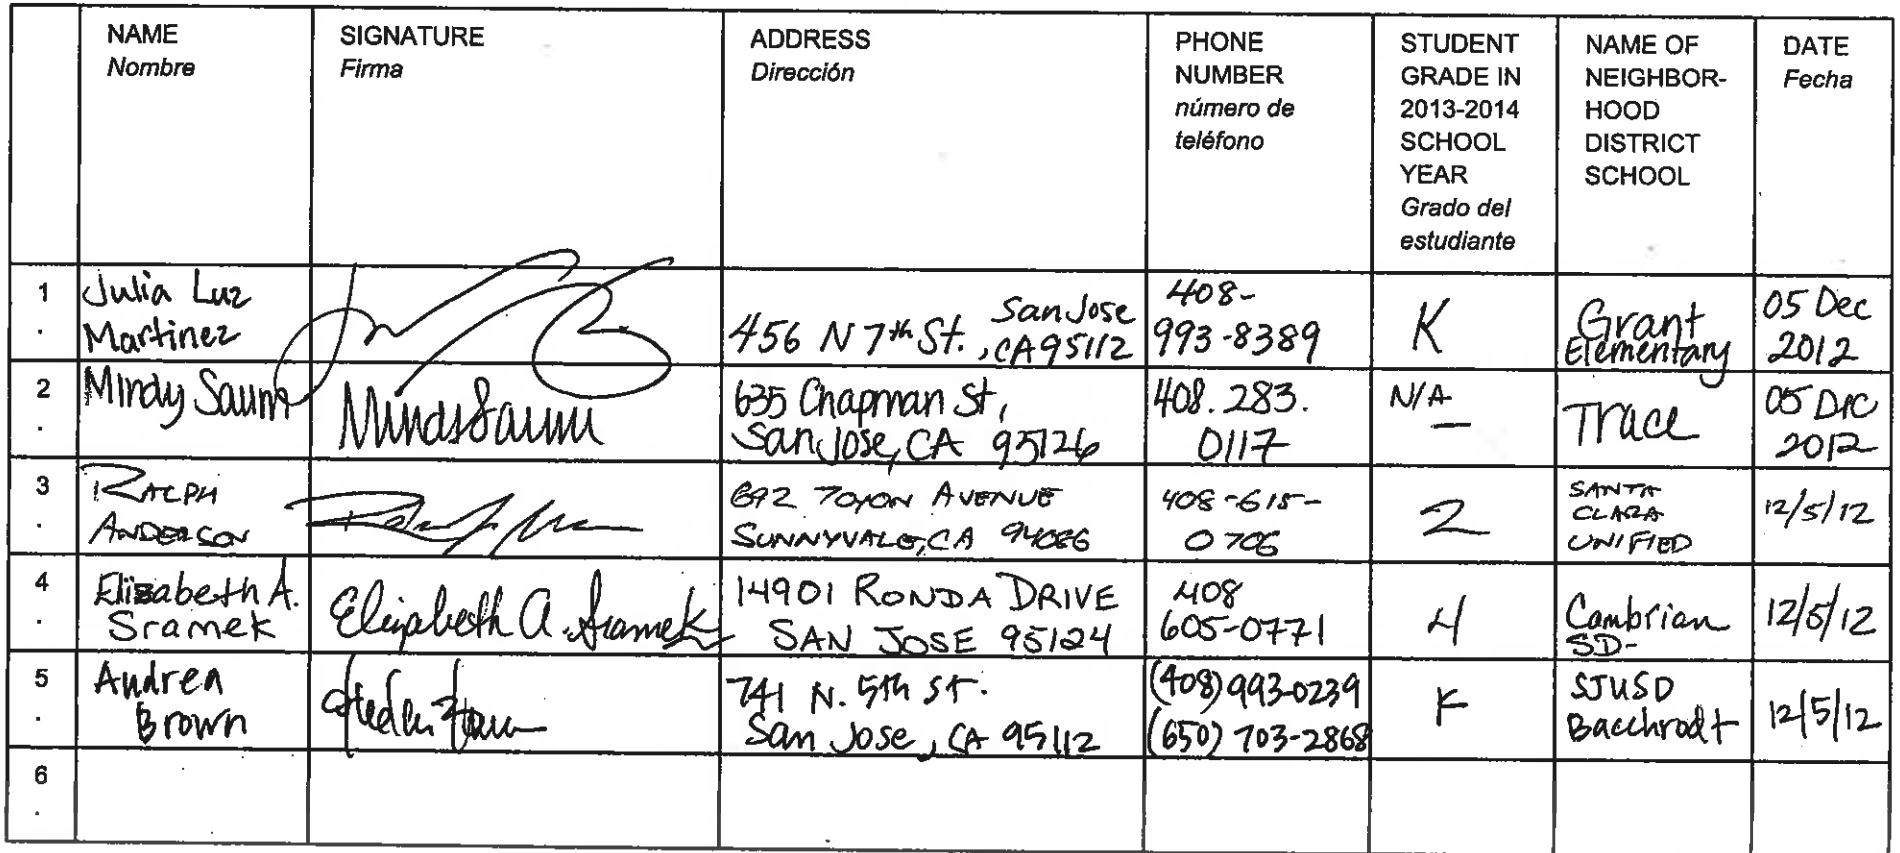 NAME
Nombre
SIGNATURE
Firma
ADDRESS
Dirección
PHONE
NUMBER
número de
teléfono
STUDENT
GRADE IN
2013-2014
SCHOOL
YEAR
Grado del
estudiante
NAME OF
NEIGHBOR-
HOOD
DISTRICT
SCHOOL
DATE
Fecha
1.
Julia Luz
Martinez
456 N 7th St., San Jose
CA 95112
408-
993-8389
K
Grant
Elementary
05 Dec
2012
2.
Mindy Saum
Mindy Saum
635 Chapman St,
San Jose, CA 95126
408.283.
0117
N/A
—
Trace
05 Dec
2012
3.
RALPH
ANDERSON
692 TOYON AVENUE
SUNNYVALE, CA 94086
408-615-
0706
2
SANTA
CLARA
UNIFIED
12/5/12
4.
Elizabeth A.
Sramek
Elizabeth A. Sramek
14901 RONDA DRIVE
SAN JOSE 95124
408
605-0771
4
Cambrian
SD-
12/5/12
5.
Andrea
Brown
741 N. 5th St.
San Jose, CA 95112
(408) 993-0239
(650) 703-2868
K
SJUSD
Bacchrodt
12/5/12
6.